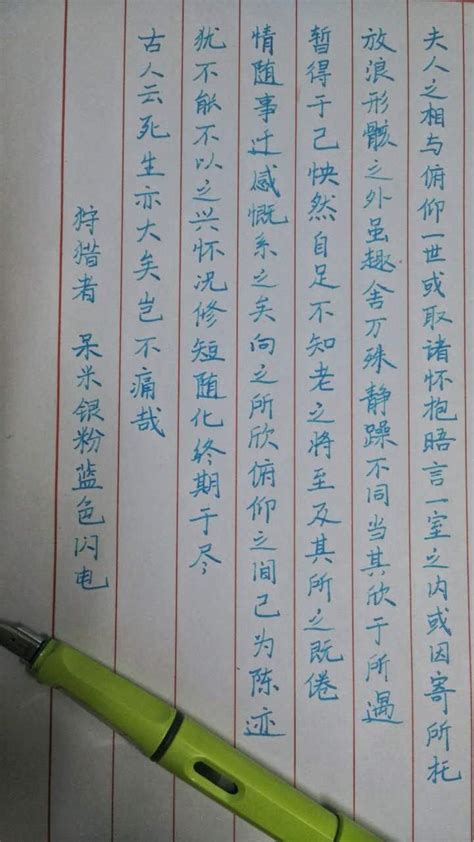 夫人之相与俯仰一世或取诸怀抱晤言一室之内或因寄所托
放浪形骸之外虽趣舍万殊静躁不同当其欣于所遇
暂得于己怏然自足不知老之将至及其所之既倦
情随事迁感慨系之矣向之所欣俯仰之间已为陈迹
犹不能不以之兴怀况修短随化终期于尽
古人云死生亦大矣岂不痛哉
狩猎者 呆米银粉蓝色闪电